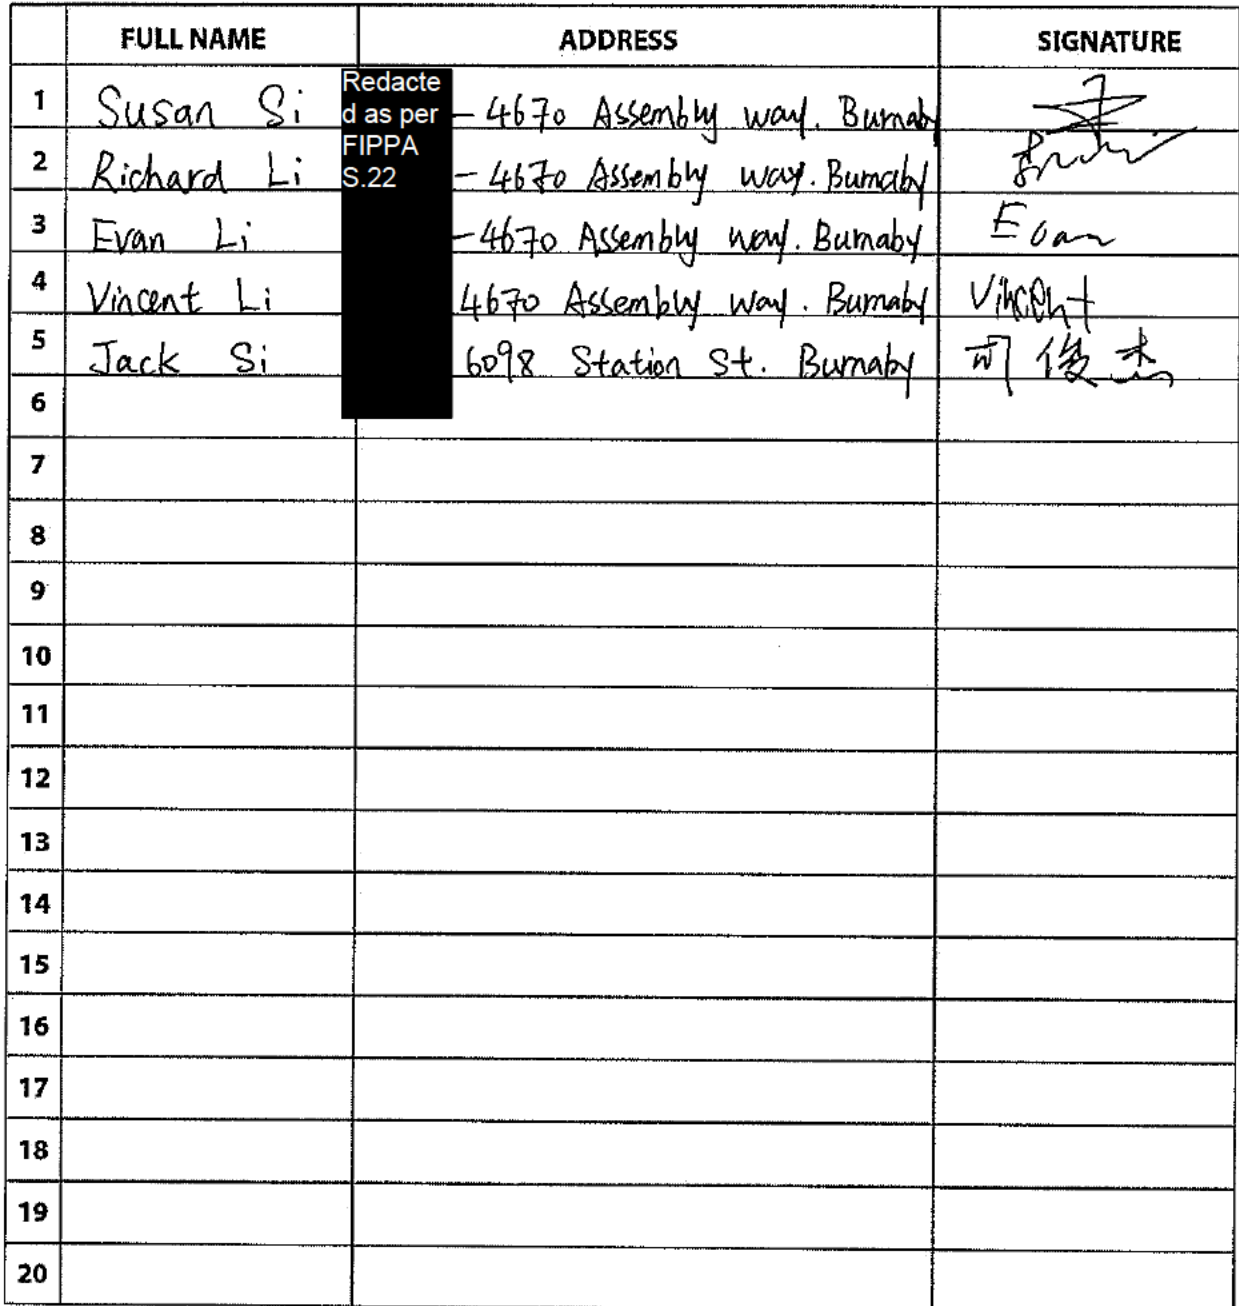 FULL NAME ADDRESS SIGNATURE
Redacte
d as per
FIPPA
S.22
1 Susan Si - 4670 Assembly way. Burnaby
2 Richard Li - 4670 Assembly way. Burnaby
3 Evan Li - 4670 Assembly way. Burnaby Evan
4 Vincent Li 4670 Assembly way. Burnaby Vincent
5 Jack Si 6098 Station St. Burnaby 司俊杰
6
7
8
9
10
11
12
13
14
15
16
17
18
19
20